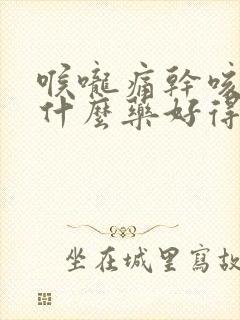 喉嚨痛幹咳
什麼藥好得
坐在城里寫故